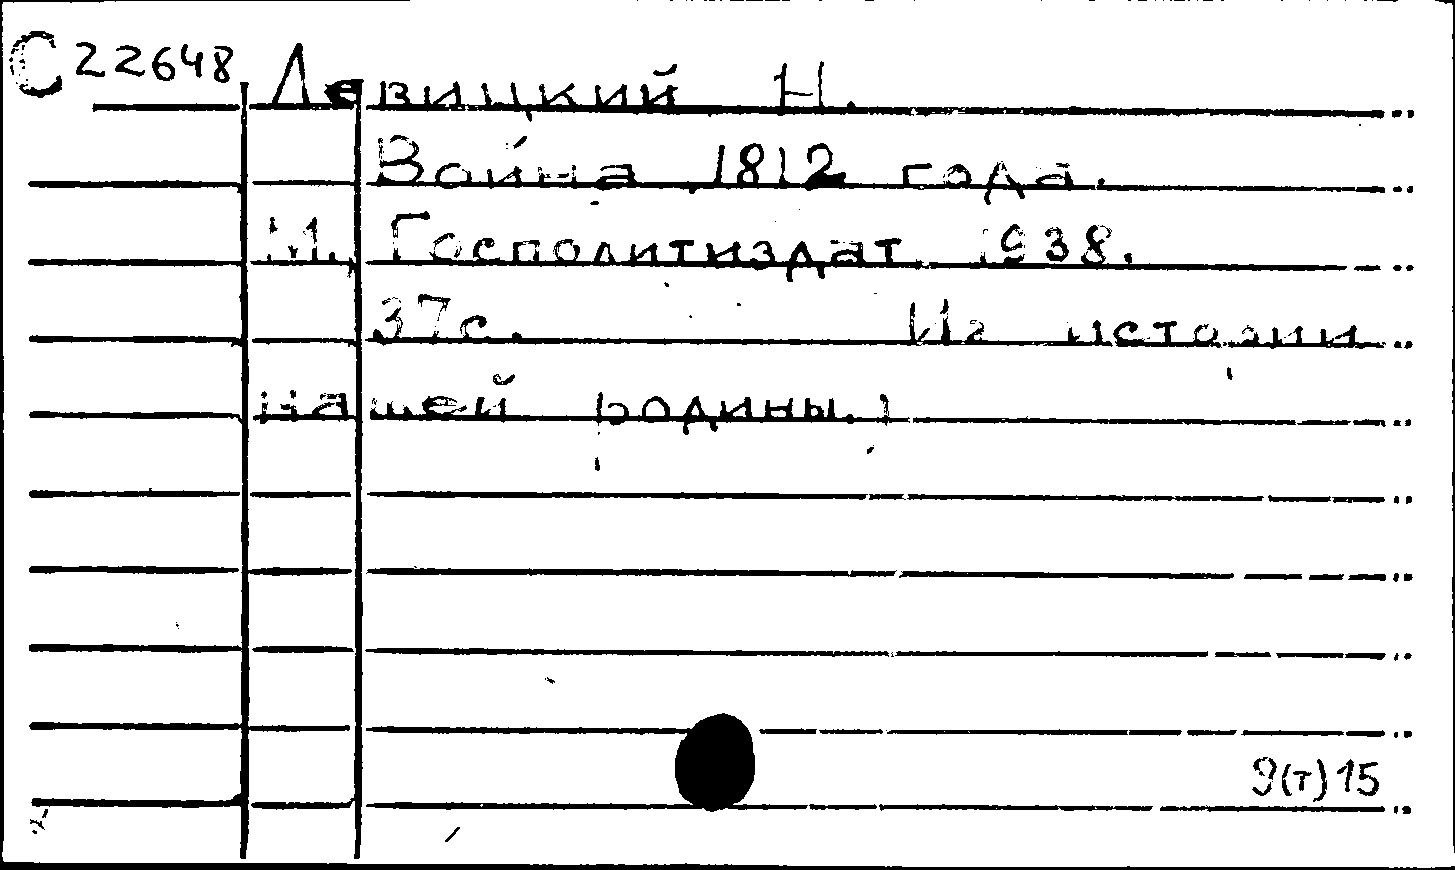 С 22648
Левицкий Н.
Война 1812 года.
М. Госполитиздат. 1938.
37с. Из истории
нашей родины.)
9(т)15